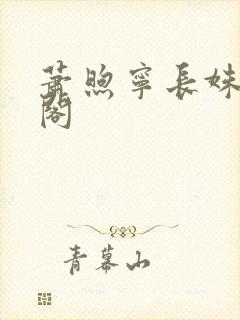 萧煦宁长妹
阁
青幕山